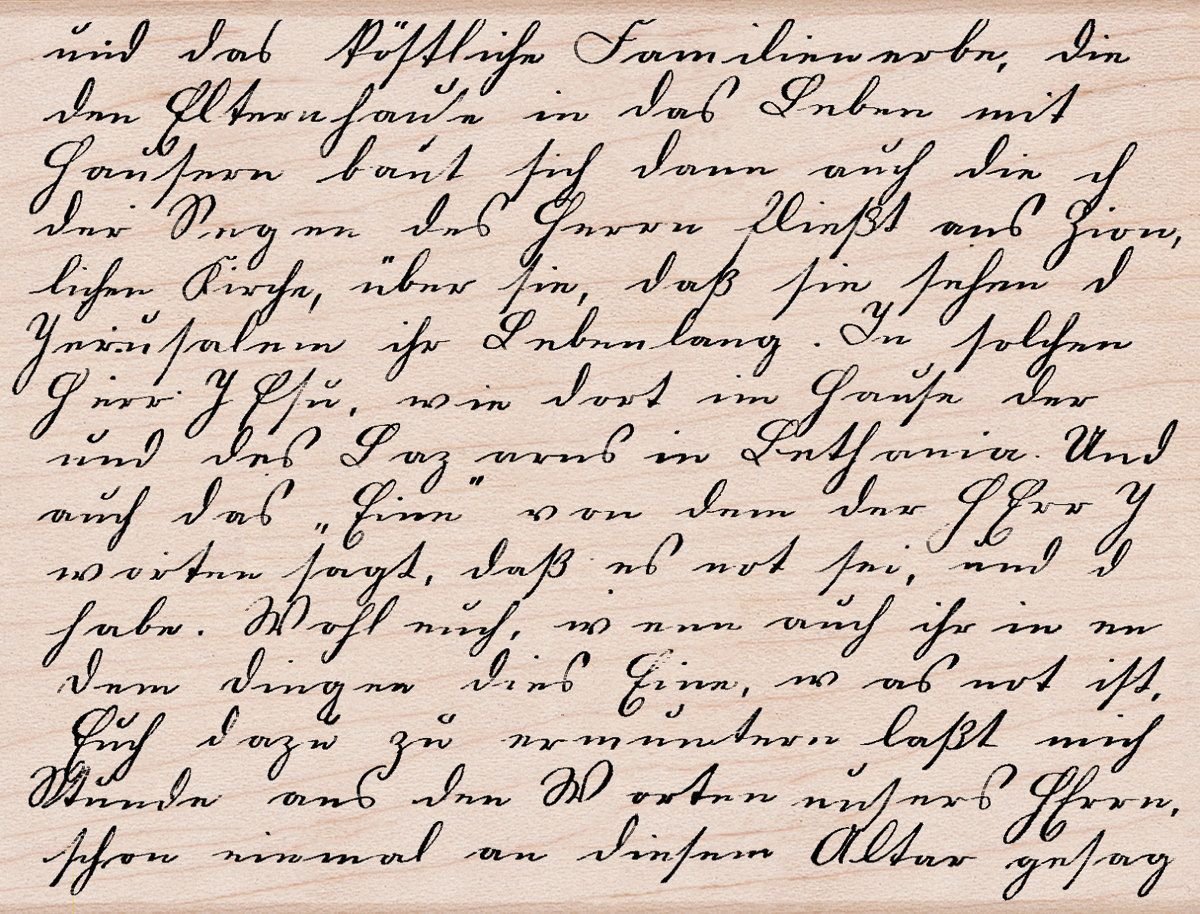 und das köstliche Familienerbe, die
den Elternhause in das Leben mit
Häusern baut sich dann auch die ch
der Segen des Herrn fließt aus Zion,
lichen Kirche, über sie, daß sie sehen d
Jerusalem ihr Lebenlang. In solchen
Herr JEsu, wie dort im Hause der
und des Lazarus in Bethania. Und
auch das „Eine" von dem der HErr J
worten sagt, daß es not sei, und d
habe. Wohl euch, wenn auch ihr in eu
dem dingen dies Eine, was not ist.
Euch dazu zu ermuntern laßt mich
Stunde aus den Worten unsers HErrn,
schon einmal an diesem Altar gesag